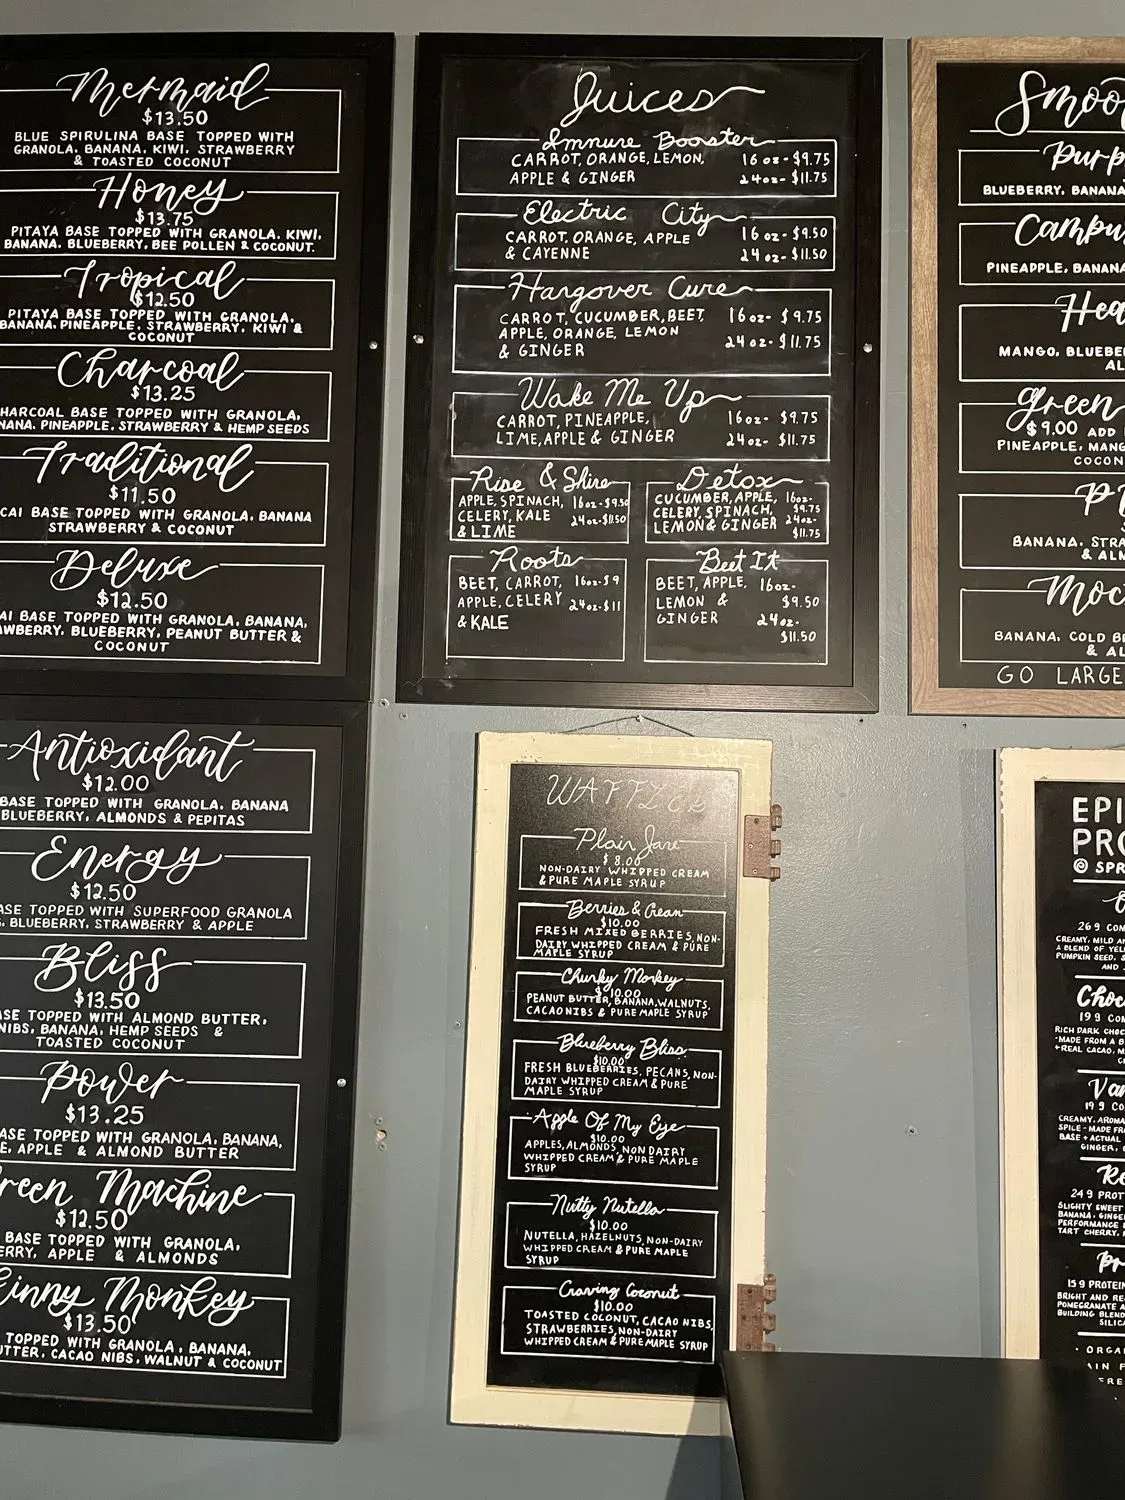 Mermaid
$13.50
BLUE SPIRULINA BASE TOPPED WITH
GRANOLA, BANANA, KIWI, STRAWBERRY
& TOASTED COCONUT
Honey
$13.75
PITAYA BASE TOPPED WITH GRANOLA, KIWI,
BANANA, BLUEBERRY, BEE POLLEN & COCONUT.
Tropical
$12.50
PITAYA BASE TOPPED WITH GRANOLA,
BANANA, PINEAPPLE, STRAWBERRY, KIWI &
COCONUT
Charcoal
$13.25
HARCOAL BASE TOPPED WITH GRANOLA,
NANA, PINEAPPLE, STRAWBERRY & HEMP SEEDS
Traditional
$11.50
CAI BASE TOPPED WITH GRANOLA, BANANA
STRAWBERRY & COCONUT
Deluxe
$12.50
AI BASE TOPPED WITH GRANOLA, BANANA,
AWBERRY, BLUEBERRY, PEANUT BUTTER &
COCONUT
Antioxidant
$12.00
BASE TOPPED WITH GRANOLA, BANANA
BLUEBERRY, ALMONDS & PEPITAS
Energy
$12.50
ASE TOPPED WITH SUPERFOOD GRANOLA
BLUEBERRY, STRAWBERRY & APPLE
Bliss
$13.50
ASE TOPPED WITH ALMOND BUTTER,
NIBS, BANANA, HEMP SEEDS &
TOASTED COCONUT
Power
$13.25
ASE TOPPED WITH GRANOLA, BANANA,
E, APPLE & ALMOND BUTTER
reen Machine
$12.50
BASE TOPPED WITH GRANOLA,
ERRY, APPLE & ALMONDS
inny Monkey
$13.50
TOPPED WITH GRANOLA, BANANA,
UTTER, CACAO NIBS, WALNUT & COCONUT
Juices
Immune Booster
CARROT, ORANGE, LEMON, 16 oz- $9.75
APPLE & GINGER 24oz- $11.75
Electric City
CARROT, ORANGE, APPLE 16 oz- $9.50
& CAYENNE 24 oz- $11.50
Hangover Cure
CARROT, CUCUMBER, BEET, 16oz- $9.75
APPLE, ORANGE, LEMON 24 oz- $11.75
& GINGER
Wake Me Up
CARROT, PINEAPPLE, 16oz- $9.75
LIME, APPLE & GINGER 24oz- $11.75
Rise & Shine
APPLE, SPINACH, 16oz-$9.50
CELERY, KALE 24oz-$11.50
& LIME
Detox
CUCUMBER, APPLE, 16oz-
CELERY, SPINACH, $9.75
LEMON & GINGER 24oz-
$11.75
Roots
BEET, CARROT, 16oz-$9
APPLE, CELERY 24oz-$11
& KALE
Beet It
BEET, APPLE, 16oz-
LEMON & $9.50
GINGER 24oz-
$11.50
WAFFLES
Plain Jane
$8.00
NON-DAIRY WHIPPED CREAM
& PURE MAPLE SYRUP
Berries & Cream
$10.00
FRESH MIXED BERRIES, NON-
DAIRY WHIPPED CREAM & PURE
MAPLE SYRUP
Chunky Monkey
$10.00
PEANUT BUTTER, BANANA, WALNUTS,
CACAO NIBS & PURE MAPLE SYRUP
Blueberry Bliss
$10.00
FRESH BLUEBERRIES, PECANS, NON-
DAIRY WHIPPED CREAM & PURE
MAPLE SYRUP
Apple Of My Eye
$10.00
APPLES, ALMONDS, NON DAIRY
WHIPPED CREAM & PURE MAPLE
SYRUP
Nutty Nutella
$10.00
NUTELLA, HAZELNUTS, NON-DAIRY
WHIPPED CREAM & PURE MAPLE
SYRUP
Craving Coconut
$10.00
TOASTED COCONUT, CACAO NIBS,
STRAWBERRIES, NON-DAIRY
WHIPPED CREAM & PURE MAPLE SYRUP
Smoo
Purp
BLUEBERRY, BANANA
Campu
PINEAPPLE, BANANA
Hea
MANGO, BLUEBE
AL
green
$9.00 ADD
PINEAPPLE, MANG
COCON
PB
BANANA, STRA
& ALM
Moc
BANANA, COLD B
& AL
GO LARGE
EPI
PRO
@ SPR
26 g COM
CREAMY, MILD AN
A BLEND OF YEL
PUMPKIN SEED, S
AND
Choc
19 g COM
RICH DARK CHOC
MADE FROM A B
+ REAL CACAO, M
Van
19 g CO
CREAMY, AROMA
SPICE - MADE FRO
BASE + ACTUAL
GINGER,
Re
24 g PROT
SLIGHTY SWEET
BANANA, GINGE
PERFORMANCE
TART CHERRY,
Pr
15 g PROTEIN
BRIGHT AND RE
POMEGRANATE A
BUILDING BLEND
SILICA
· ORGA
AIN F
FRE